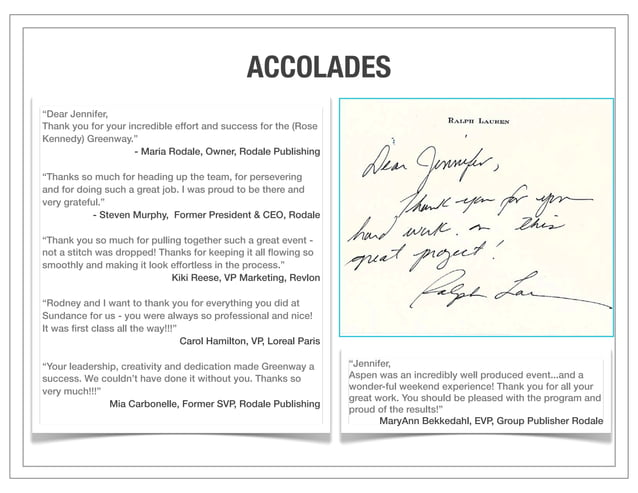 ACCOLADES
“Dear Jennifer,
Thank you for your incredible effort and success for the (Rose
Kennedy) Greenway.”
- Maria Rodale, Owner, Rodale Publishing
“Thanks so much for heading up the team, for persevering
and for doing such a great job. I was proud to be there and
very grateful.”
- Steven Murphy, Former President & CEO, Rodale
“Thank you so much for pulling together such a great event -
not a stitch was dropped! Thanks for keeping it all flowing so
smoothly and making it look effortless in the process.”
Kiki Reese, VP Marketing, Revlon
“Rodney and I want to thank you for everything you did at
Sundance for us - you were always so professional and nice!
It was first class all the way!!!”
Carol Hamilton, VP, Loreal Paris
“Your leadership, creativity and dedication made Greenway a
success. We couldn’t have done it without you. Thanks so
very much!!!”
Mia Carbonelle, Former SVP, Rodale Publishing
RALPH LAUREN
Dear Jennifer,
Thank you for your
hard work on this
great project!
Ralph Lau
“Jennifer,
Aspen was an incredibly well produced event...and a
wonder-ful weekend experience! Thank you for all your
great work. You should be pleased with the program and
proud of the results!”
MaryAnn Bekkedahl, EVP, Group Publisher Rodale